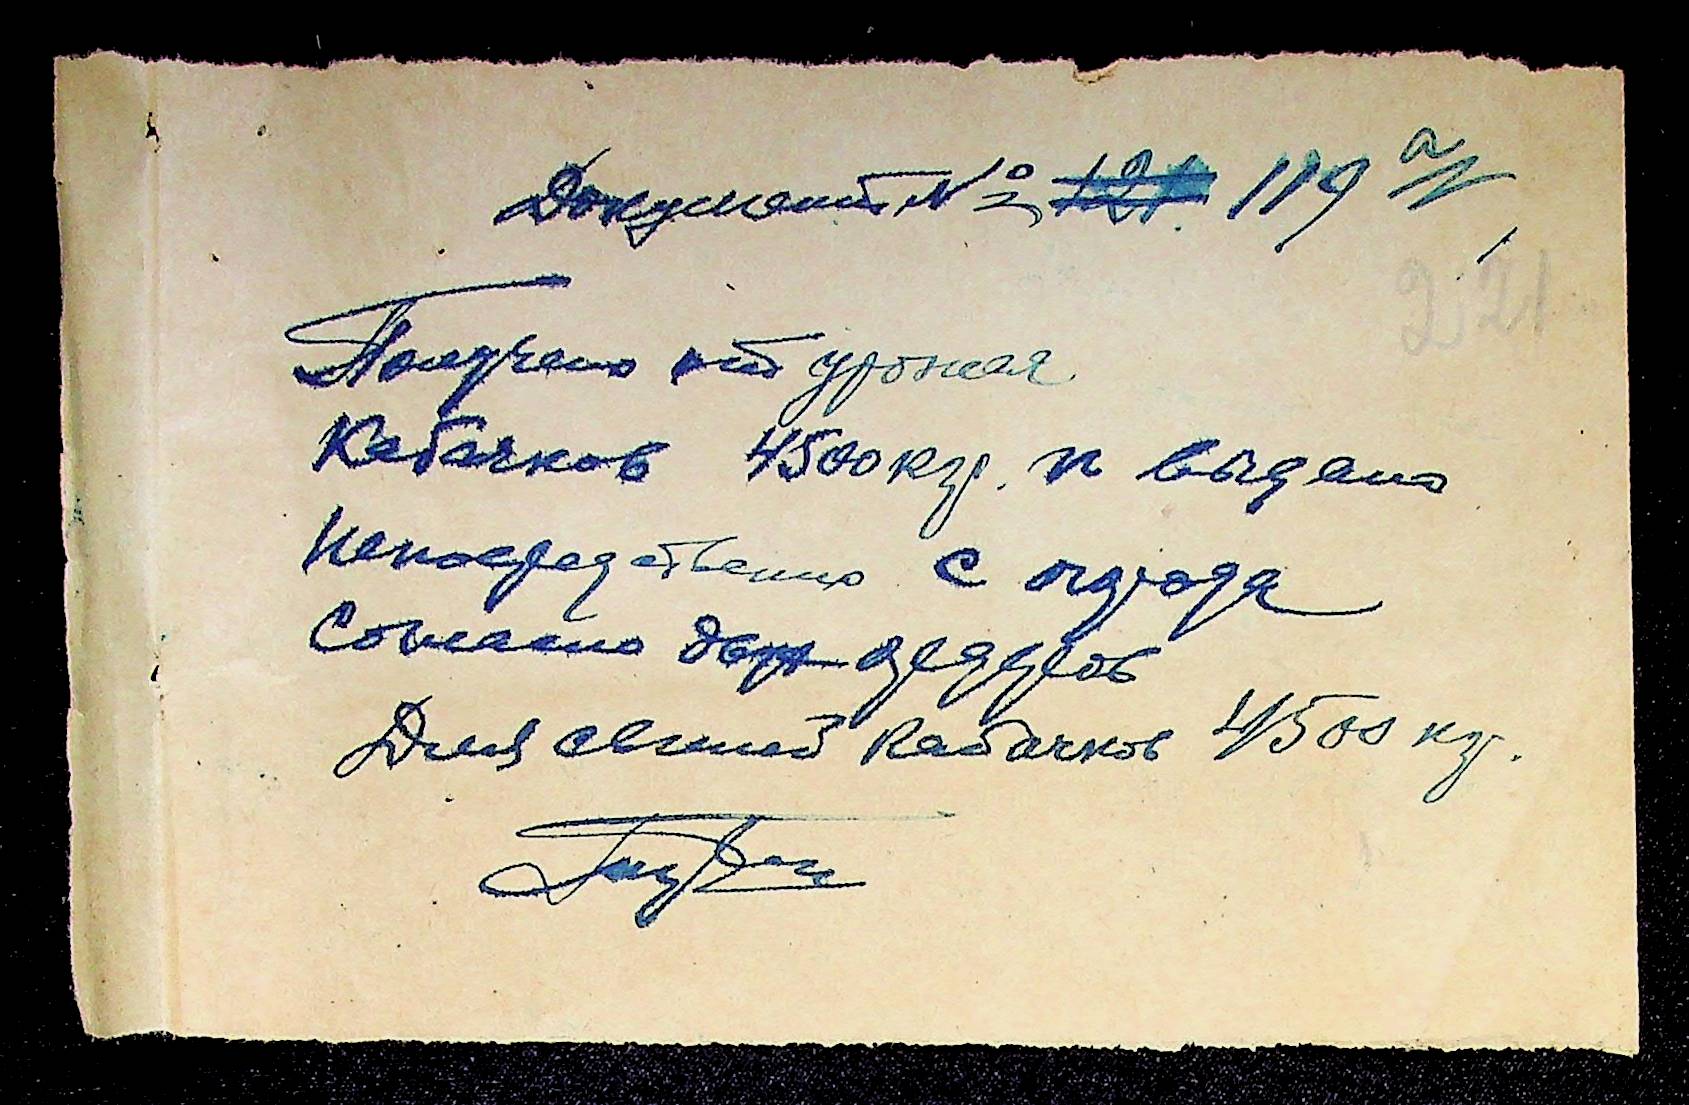 Документ № 121 119 а
221
Получено от урожая
Кабачков 4500 кгр. и выдано
Непосредственно с огорода
Согласно ордеров
Для свиней Кабачков 4500 кгр.